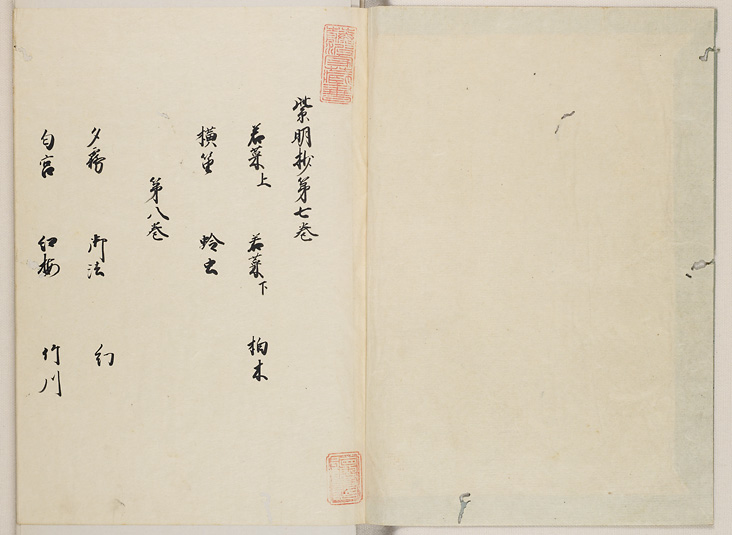 紫明抄第七巻
若菜上 若菜下 柏木
横笛 鈴虫
第八巻
夕霧 御法 幻
匂宮 紅梅 竹川